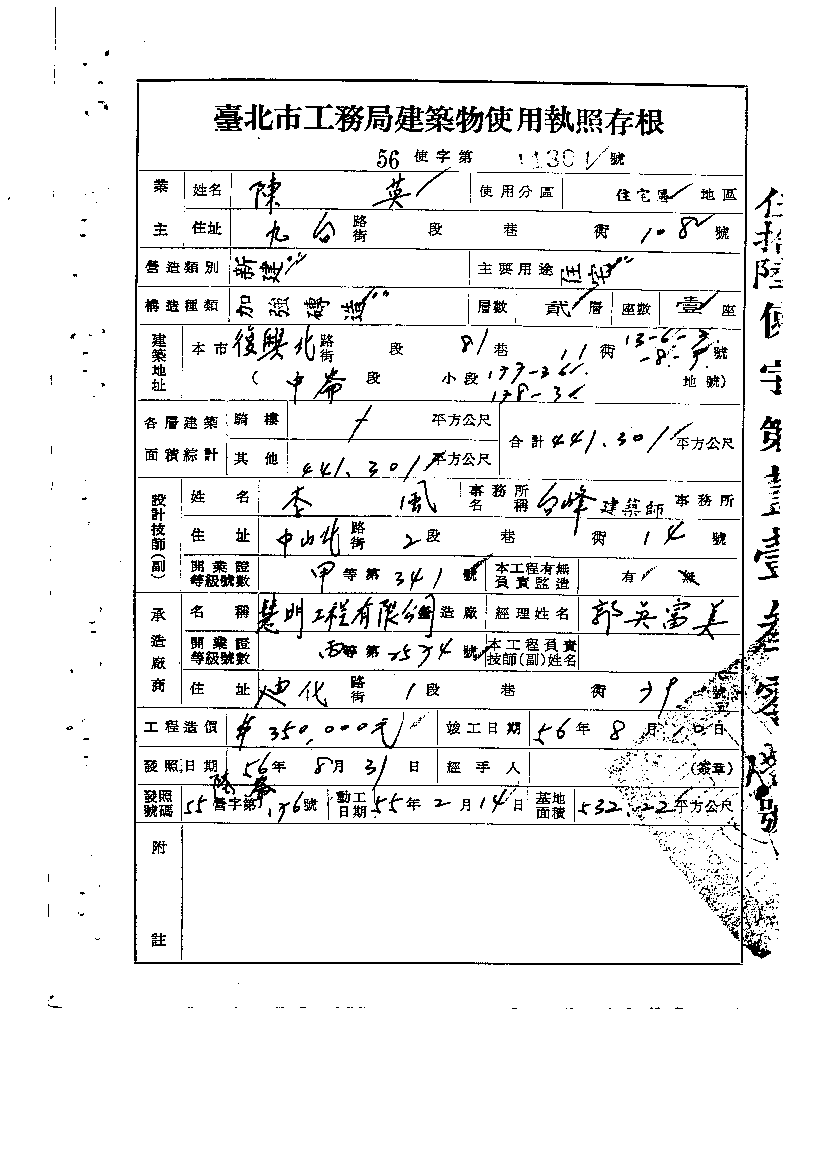 臺北市工務局建築物使用執照存根
56 使字第 號
業主 姓名 陳 英 使用分區 住宅區 地區
住址 九台 路街 段 巷 衖 108 號
營造類別 新建 主要用途 住宅
構造種類 加強磚造 層數 貳 層 座數 壹 座
建築地址 本市 復興北 路街 段 81 巷 11 衖 號
( 中崙 段 小段 地號)
各層建築面積綜計 騎樓 平方公尺 合計 441.30 平方公尺
其他 441.30 平方公尺
設計技師(副) 姓名 李 事務所名稱 台峰 建築師 事務所
住址 中山北 路街 2 段 巷 衖 14 號
開業證等級號數 甲 等第 341 號 本工程有無負責監造 有 無
承造廠商 名稱 慧明工程有限公司 營造廠 經理姓名 郭吳富美
開業證等級號數 丙 等第 號 本工程負責技師(副)姓名
住址 迪化 路街 1 段 巷 衖 號
工程造價 350,000元 竣工日期 56 年 8 月 10 日
發照日期 56 年 8 月 31 日 經手人 (簽章)
發照號碼 55 營字第 號 動工日期 55 年 2 月 14 日 基地面積 532.22 平方公尺
附註
伍拾陸使字第壹壹叁零陸號